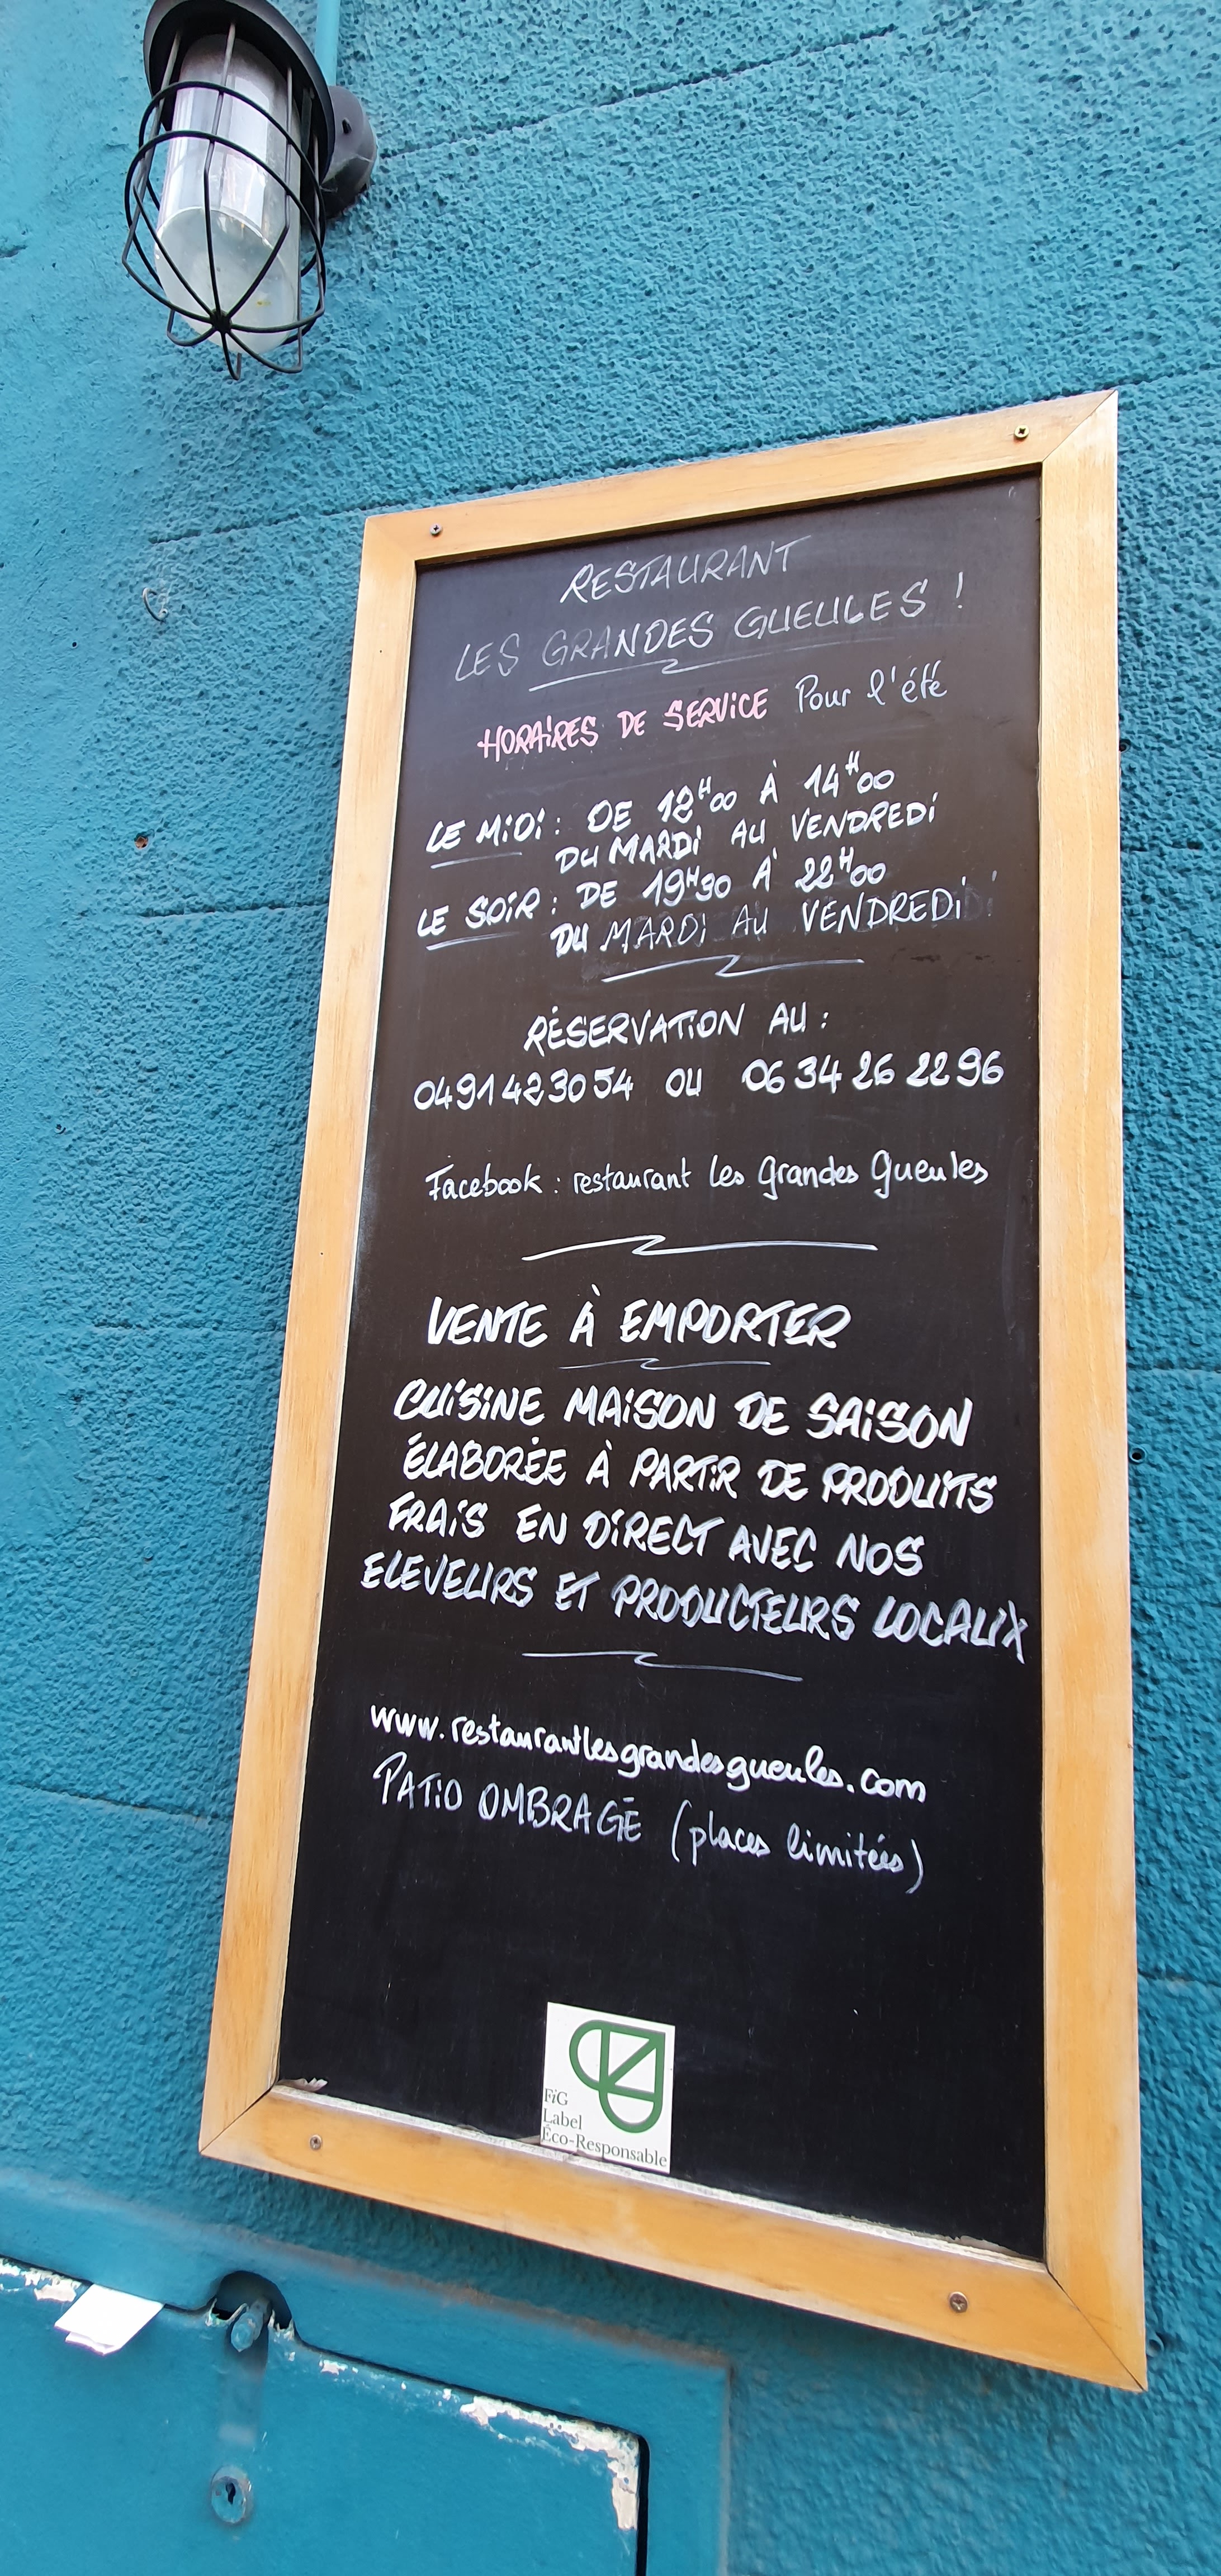 RESTAURANT
LES GRANDES GUEULES !
HORAIRES DE SERVICE Pour l'été
LE MIDI : DE 12H00 À 14H00
DU MARDI AU VENDREDI
LE SOIR : DE 19H30 À 22H00
DU MARDI AU VENDREDI
RÉSERVATION AU :
0491423054 OU 06 34 26 22 96
Facebook : restaurant les grandes gueules
VENTE À EMPORTER
CUISINE MAISON DE SAISON
ÉLABORÉE À PARTIR DE PRODUITS
FRAIS EN DIRECT AVEC NOS
ELEVEURS ET PRODUCTEURS LOCAUX
www.restaurantlesgrandesgueules.com
PATIO OMBRAGÉ (places limitées)
FiG
Label
Éco-Responsable